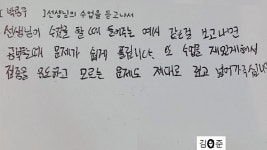 [ 박용구 ]선생님의 수업을 듣고나서
선생님이 수업을 할 때 들어주는 예시 같은걸 보고나면
공부할때 문제가 쉽게 풀립니다. 또 수업을 재밌게해서
집중을 유도하고 모르는 문제도 제대로 짚고 넘어가주십니다
김 준